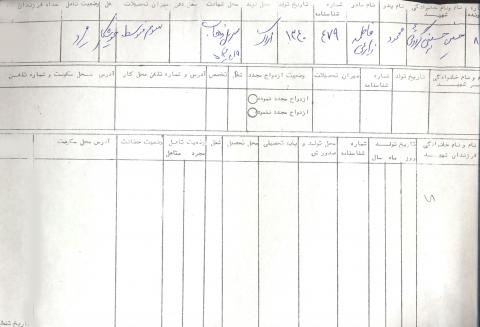 نام و نام خانوادگی شهید نام پدر نام مادر شماره شناسنامه تاریخ تولد محل تولد محل شهادت میزان تحصیلات شغل وضعیت تاهل تعداد فرزندان
۸ حسین حسینی محمود فاطمه ۴۷۹ ۱۳۴۰ اراک سرپل ذهاب سوم متوسط مجرد
نام و نام خانوادگی همسر شهید تاریخ تولد شماره شناسنامه میزان تحصیلات وضعیت ازدواج مجدد شغل تخصص آدرس و شماره تلفن محل کار آدرس محل سکونت و شماره تلفن
ازدواج مجدد نموده
ازدواج مجدد ننموده
نام و نام خانوادگی فرزندان شهید تاریخ تولد روز ماه سال شماره شناسنامه محل تولد و صدور ش پایه تحصیلی محل تحصیل شغل وضعیت تاهل مجرد متاهل وضعیت حضانت آدرس محل سکونت